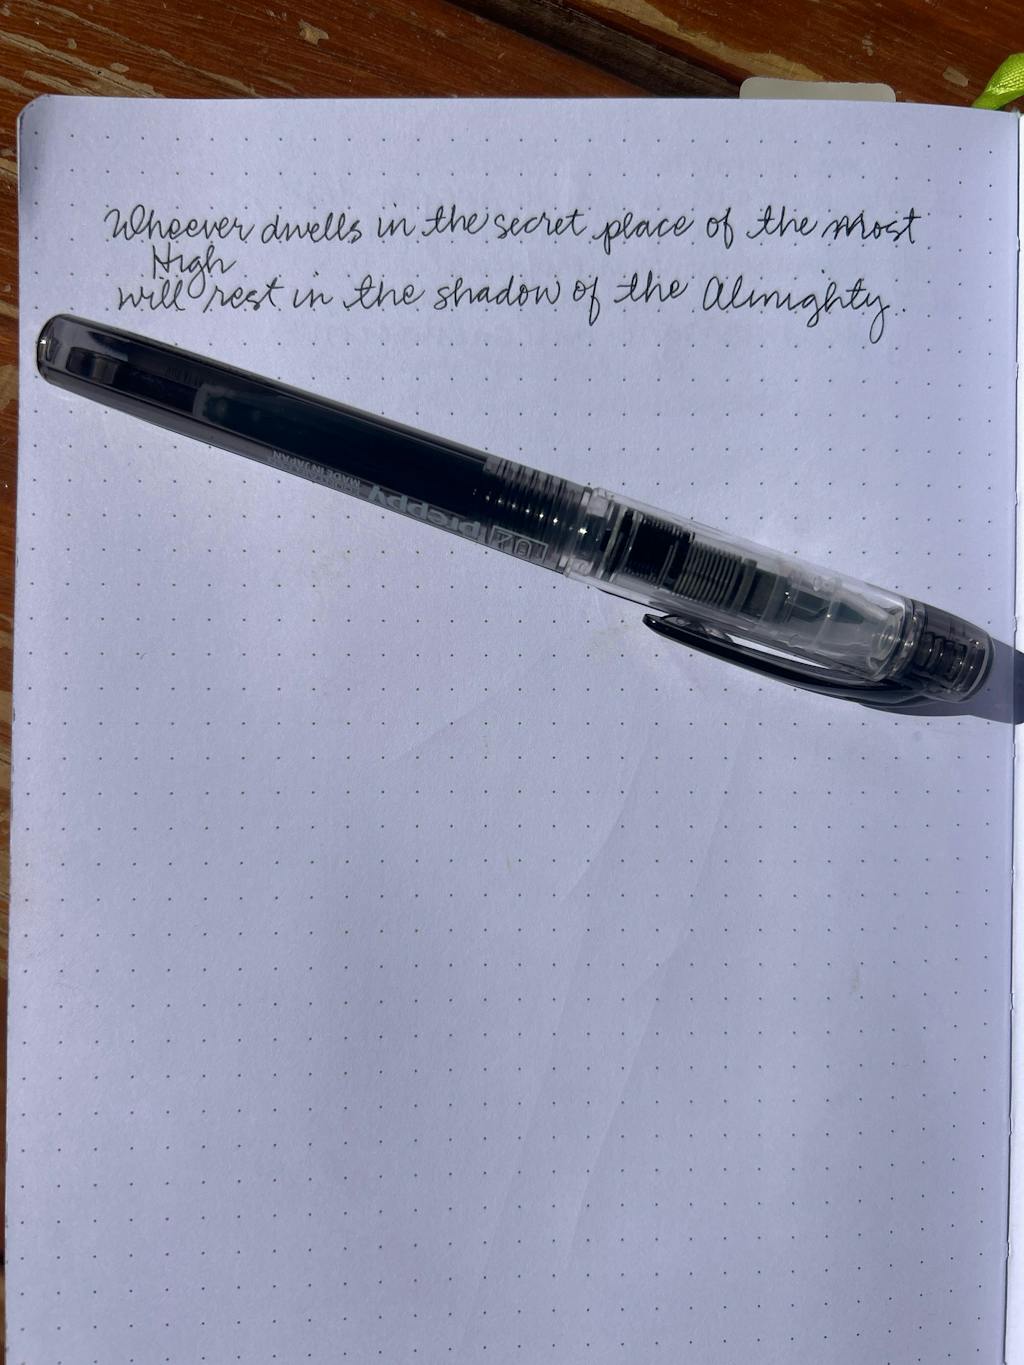 Whoever dwells in the secret place of the Most
High
will rest in the shadow of the Almighty.
02 preppy
MADE IN JAPAN